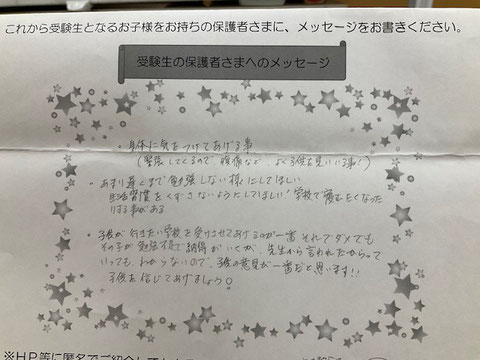 これから受験生となるお子様をお持ちの保護者さまに、メッセージをお書きください。
受験生の保護者さまへのメッセージ
・身体に気をつけてあげる事
(緊張してくるので、腹痛など、よく子供を見ている事!)
・あまり遅くまで勉強しない様にしてほしい
生活習慣をくずさないようにしてほしい 学校で寝むたくなった
りする事がある
・子供が行きたい学校を受けさせてあげるのが一番 それでダメでも
その子が勉強不足で納得がいくが、先生から言われたからって
いっても、わからないので、子供の意見が一番だと思います!!
子供を信じてあげましょう
※HP等に匿名でご紹介して